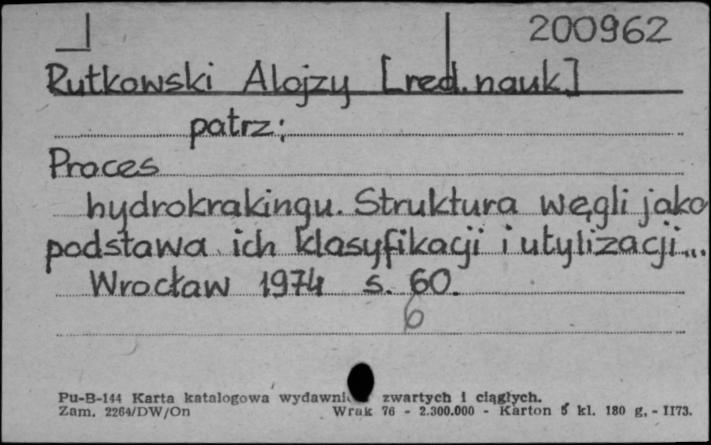 200962
Rutkowski Alojzy [red. nauk]
patrz:
Proces
hydrokrakingu. Struktura węgli jako
podstawa ich klasyfikacji i utylizacji...
Wrocław 1974 s. 60.
6
Pu-B-144 Karta katalogowa zwartych i ciągłych.
Zam. 2264/DW/On Wrak 76 - 2.300.000 - Karton 5 kl. 180 g, - II73.